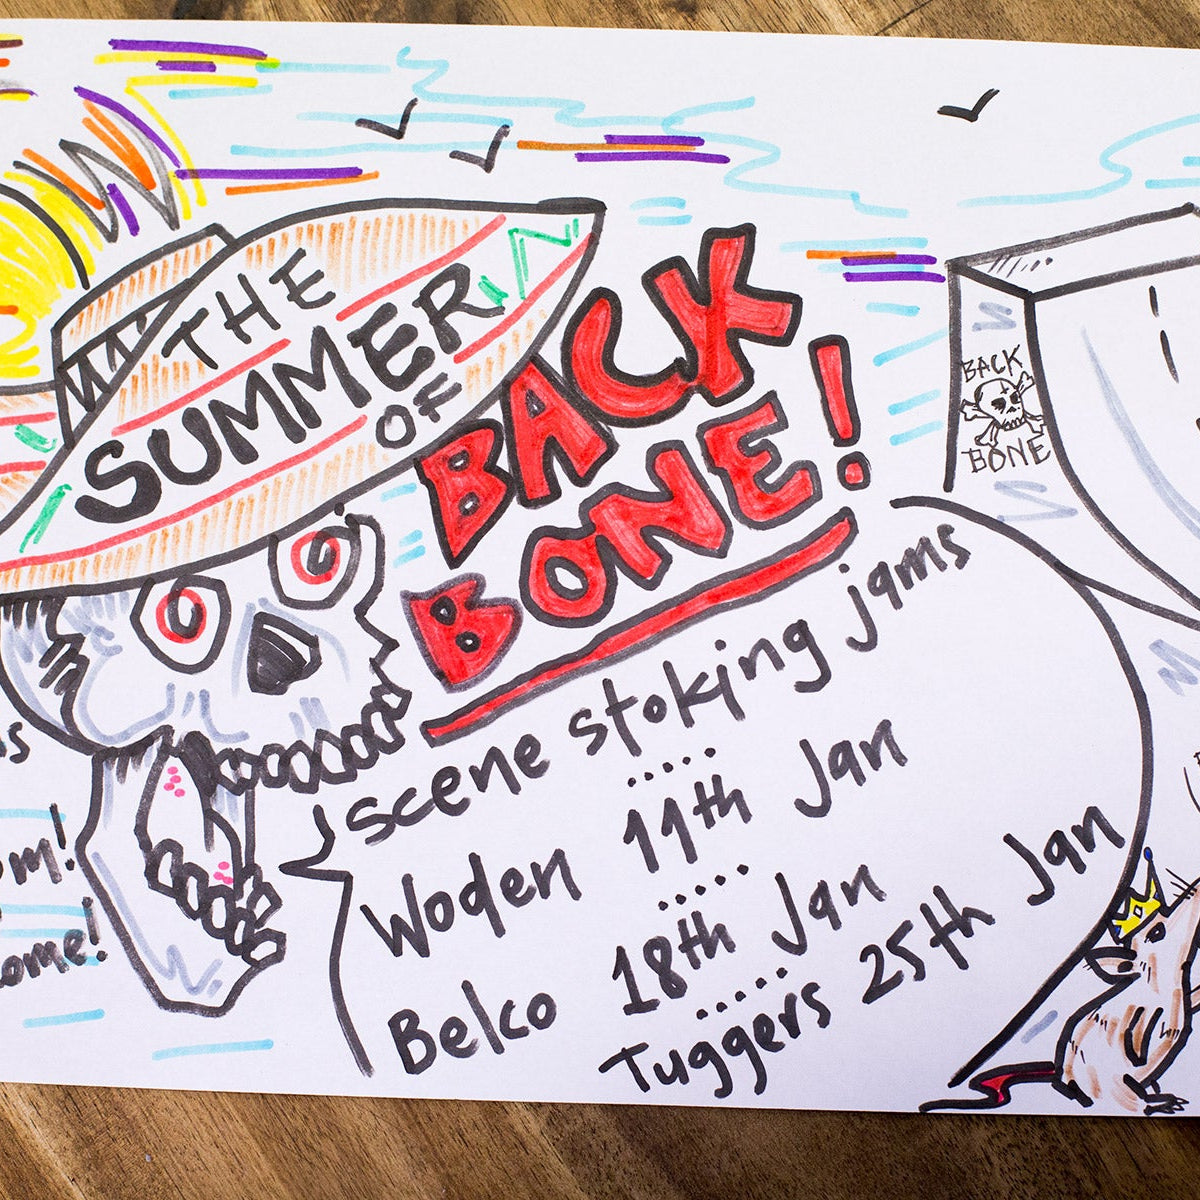 THE
SUMMER
OF
BACK
BONE!
scene stoking jams
Woden 11th Jan
Belco 18th Jan
Tuggers 25th Jan
BACK
BONE